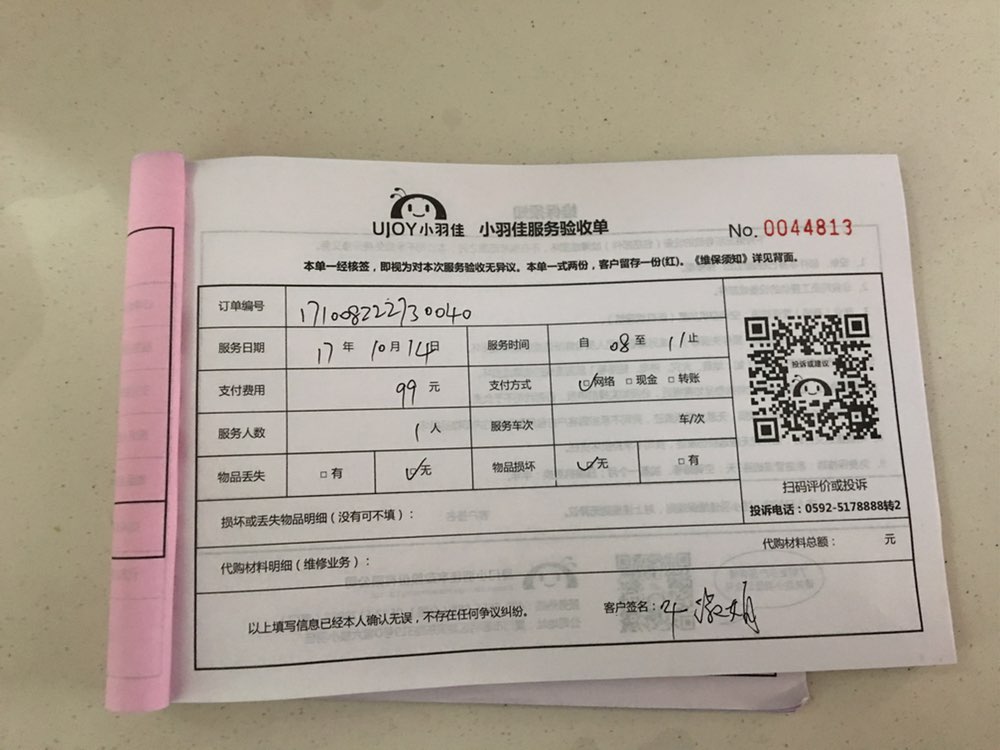 UJOY小羽佳 小羽佳服务验收单
No. 0044813
本单一经核签，即视为对本次服务验收无异议。本单一式两份，客户留存一份(红)。《维保须知》详见背面。
订单编号 171008222730040
服务日期 17 年 10 月 14 日 服务时间 自 08 至 11 止
支付费用 99 元 支付方式 网络 现金 转账
服务人数 1 人 服务车次 车/次
物品丢失 有 无 物品损坏 无 有
投诉或建议
扫码评价或投诉
投诉电话：0592-5178888转2
损坏或丢失物品明细（没有可不填）：
代购材料明细（维修业务）： 代购材料总额： 元
以上填写信息已经本人确认无误，不存在任何争议纠纷。 客户签名：